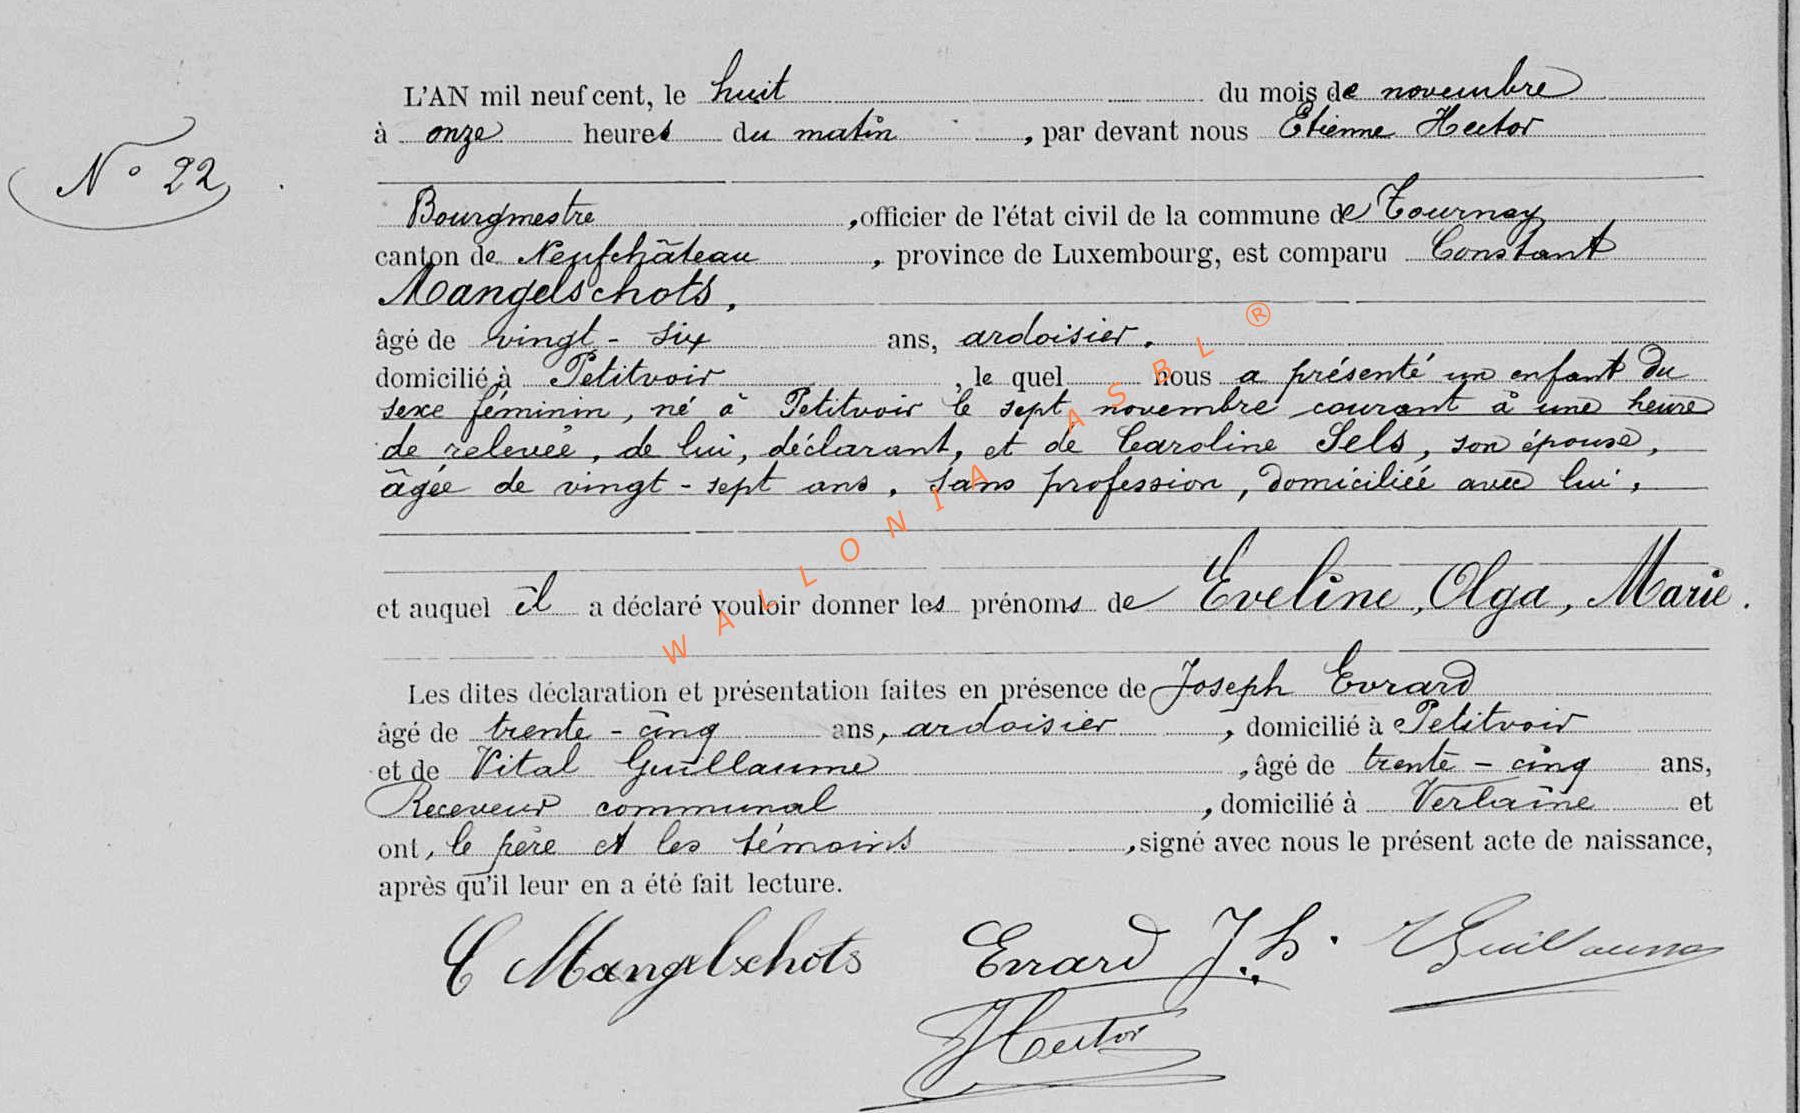 L'AN mil neuf cent, le huit du mois de novembre
à onze heures du matin, par devant nous Etienne Hector
N° 22
Bourgmestre, officier de l'état civil de la commune de Tournay
canton de Neufchâteau, province de Luxembourg, est comparu Constant
Mangelschots,
âgé de vingt-six ans, ardoisier.
domicilié à Petitvoir, le quel nous a présenté un enfant du
sexe féminin, né à Petitvoir le sept novembre courant à une heure
de relevée, de lui, déclarant, et de Caroline Sels, son épouse,
âgée de vingt-sept ans, sans profession, domiciliée avec lui,
et auquel il a déclaré vouloir donner les prénoms de Eveline, Olga, Marie.
Les dites déclaration et présentation faites en présence de Joseph Evrard
âgé de trente-cinq ans, ardoisier, domicilié à Petitvoir
et de Vital Guillaume, âgé de trente-cinq ans,
Receveur communal, domicilié à Verlaine et
ont, le père et les témoins, signé avec nous le présent acte de naissance,
après qu'il leur en a été fait lecture.
C Mangelschots Evrard J. h. V Guillaume
Hector
WALLONIA ASBL ®